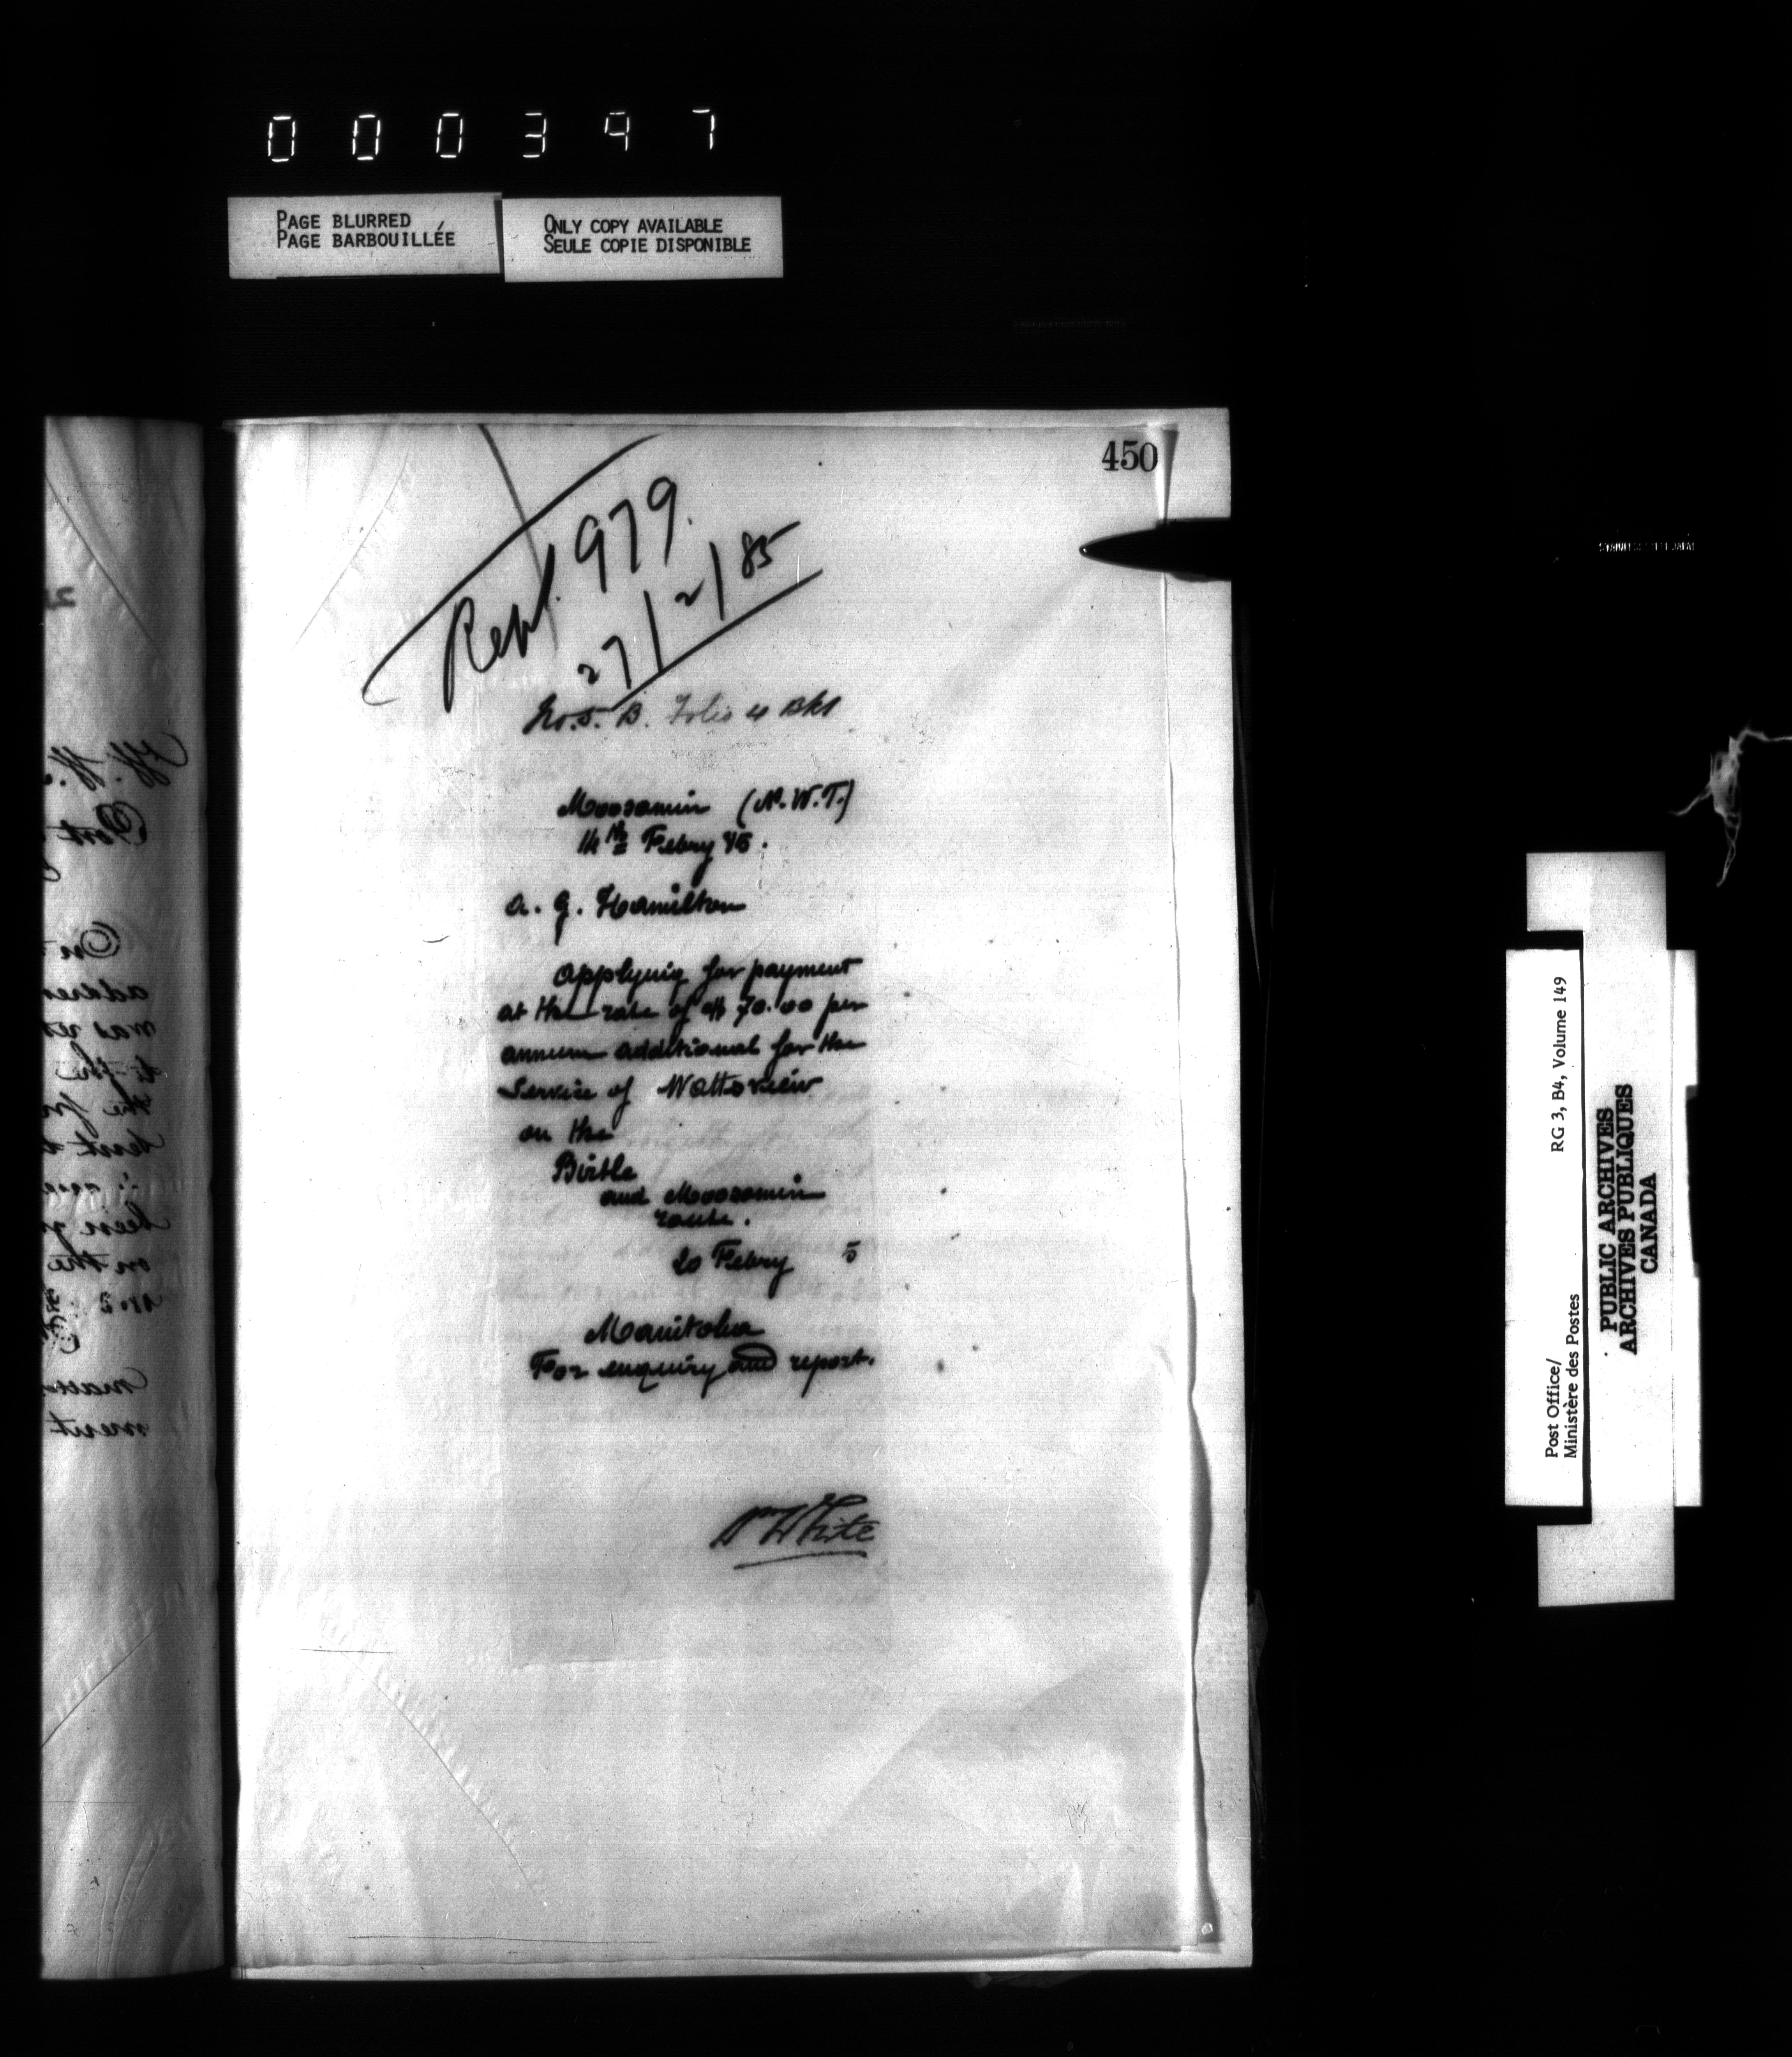 000397
PAGE BLURRED
PAGE BARBOUILLÉE
ONLY COPY AVAILABLE
SEULE COPIE DISPONIBLE
450
Rept. 979.
27/2/85
No. 5. B. Folio 4
Moosomin (N.W.T.)
14th Febry 85.
A. G. Hamilton
Applying for payment
at the rate of $70.00 per
annum additional for the
Service of Wattsview
on the
Birtle
and Moosomin
route.
20 Febry 5
Manitoba
For enquiry and report.
White
Post Office/
Ministère des Postes
RG 3, B4, Volume 149
PUBLIC ARCHIVES
ARCHIVES PUBLIQUES
CANADA